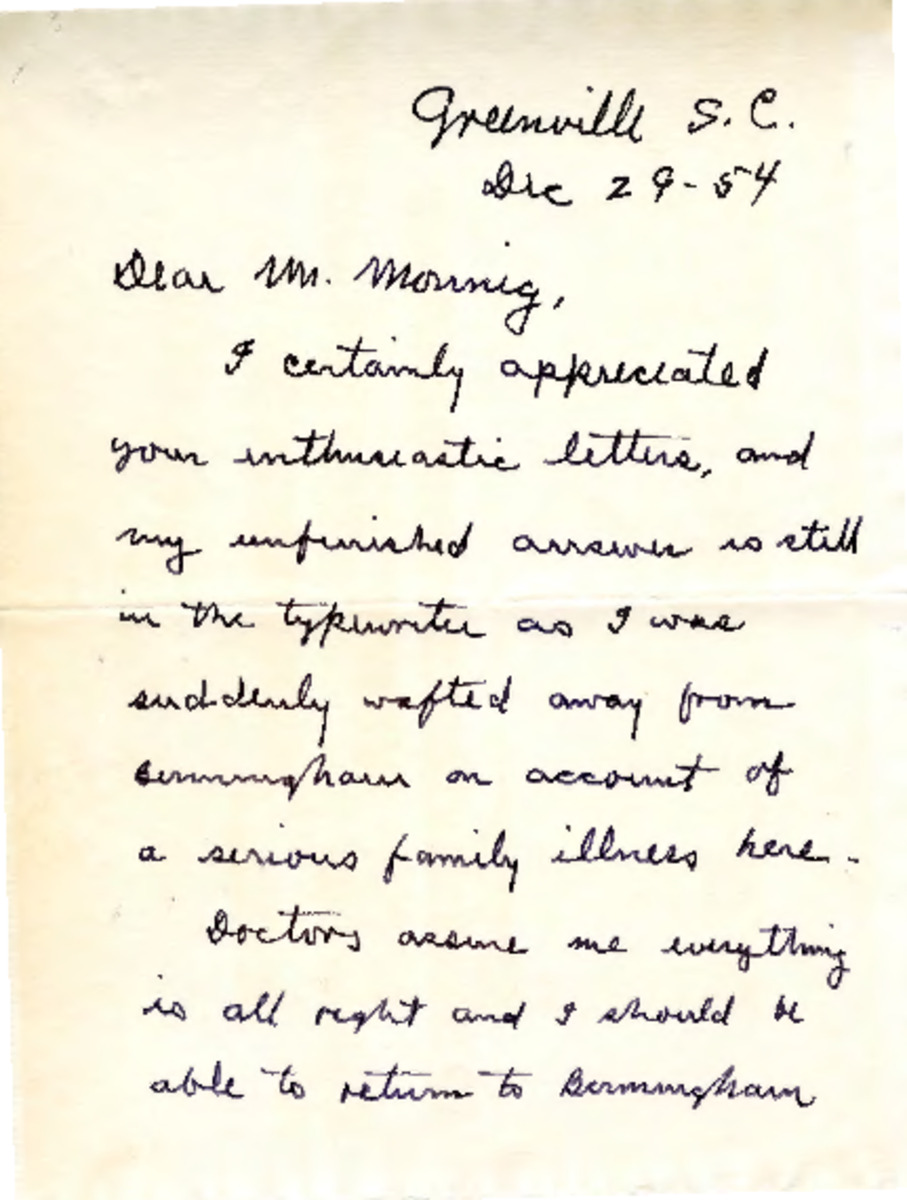 Greenville S.C.
Dec 29-54
Dear Mr. Mornnig,
I certainly appreciated
your enthusiastic letters, and
my unfinished answer is still
in the typewriter as I was
suddenly wafted away from
Birmingham on account of
a serious family illness here.
Doctors assure me everything
is all right and I should be
able to return to Birmingham